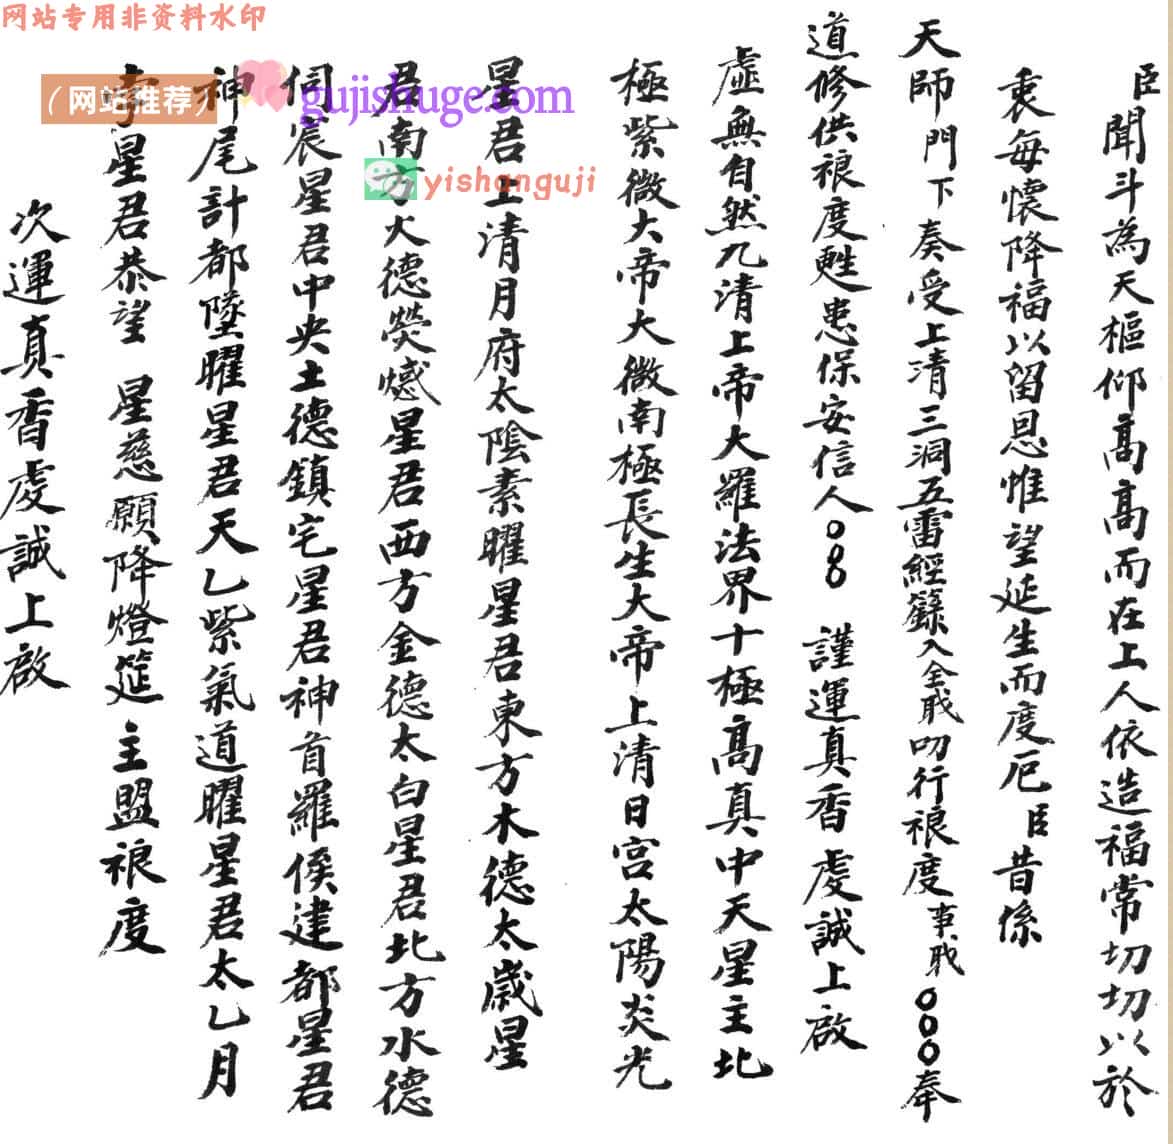 网站专用非资料水印
(网站推荐)
gujishuge.com
yishanguji
臣聞斗為天樞仰高高而在上人依造福常切切以於
衷每懷降福以留恩惟望延生而度厄臣昔係
天師門下奏受上清三洞五雷經籙入全戝叨行禳度事戝〇〇〇奉
道修供禳度甦患保安信人〇8 謹運真香虔誠上啟
虛無自然九清上帝大羅法界十極高真中天星主北
極紫微大帝大微南極長生大帝上清日宮太陽炎光
星君上清月府太陰素曜星君東方木德太歲星
君南方火德熒惑星君西方金德太白星君北方水德
伺宸星君中央土德鎮宅星君神首羅侯建都星君
神尾計都墜曜星君天乙紫氣道曜星君太乙月
孛星君恭望 星慈願降燈筵主盟禳度
次運真香虔誠上啟